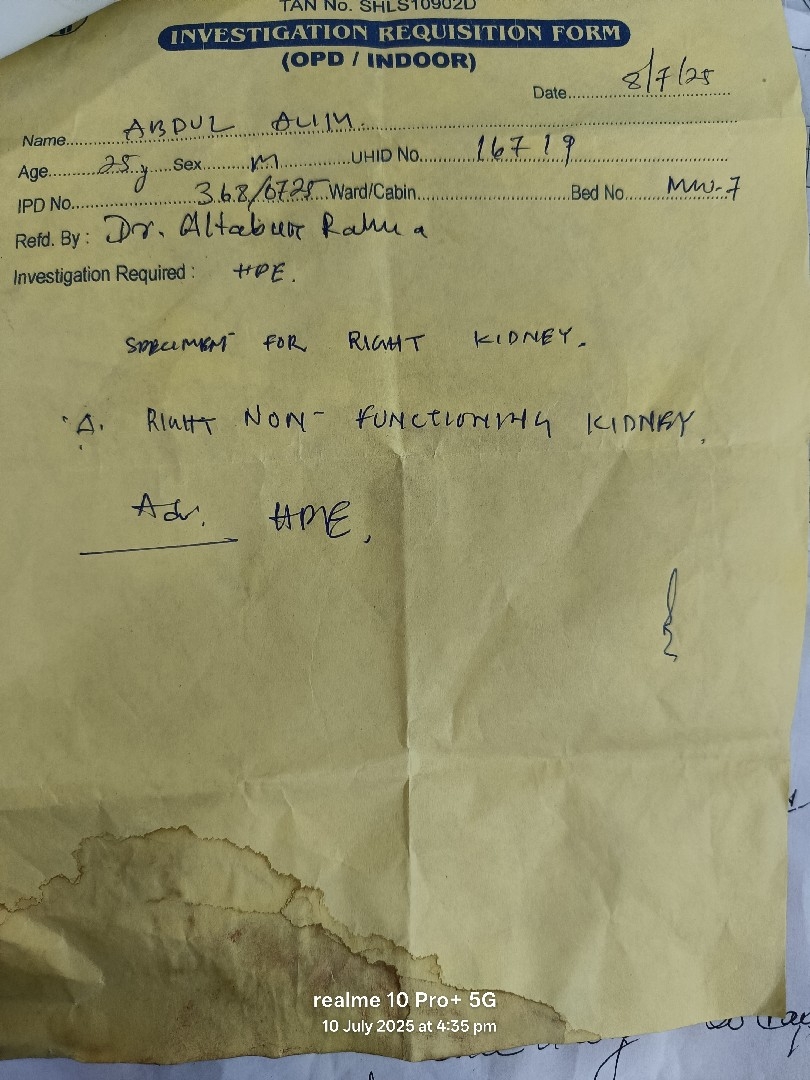 TAN No. SHLS10902D
INVESTIGATION REQUISITION FORM
(OPD / INDOOR)
Date 8/7/25
Name ABDUL ALIM
Age 25y Sex M UHID No. 16719
IPD No. 368/0725 Ward/Cabin Bed No. MW-7
Refd. By : Dr. Altabur
Investigation Required : HPE.
SPECIMENT FOR RIGHT KIDNEY.
RIGHT NON-FUNCTIONING KIDNEY.
Adv. HPE,
realme 10 Pro+ 5G
10 July 2025 at 4:35 pm